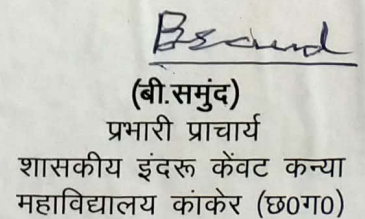 (बी.समुंद)
प्रभारी प्राचार्य
शासकीय इंदरू केंवट कन्या
महाविद्यालय कांकेर (छ0ग0)